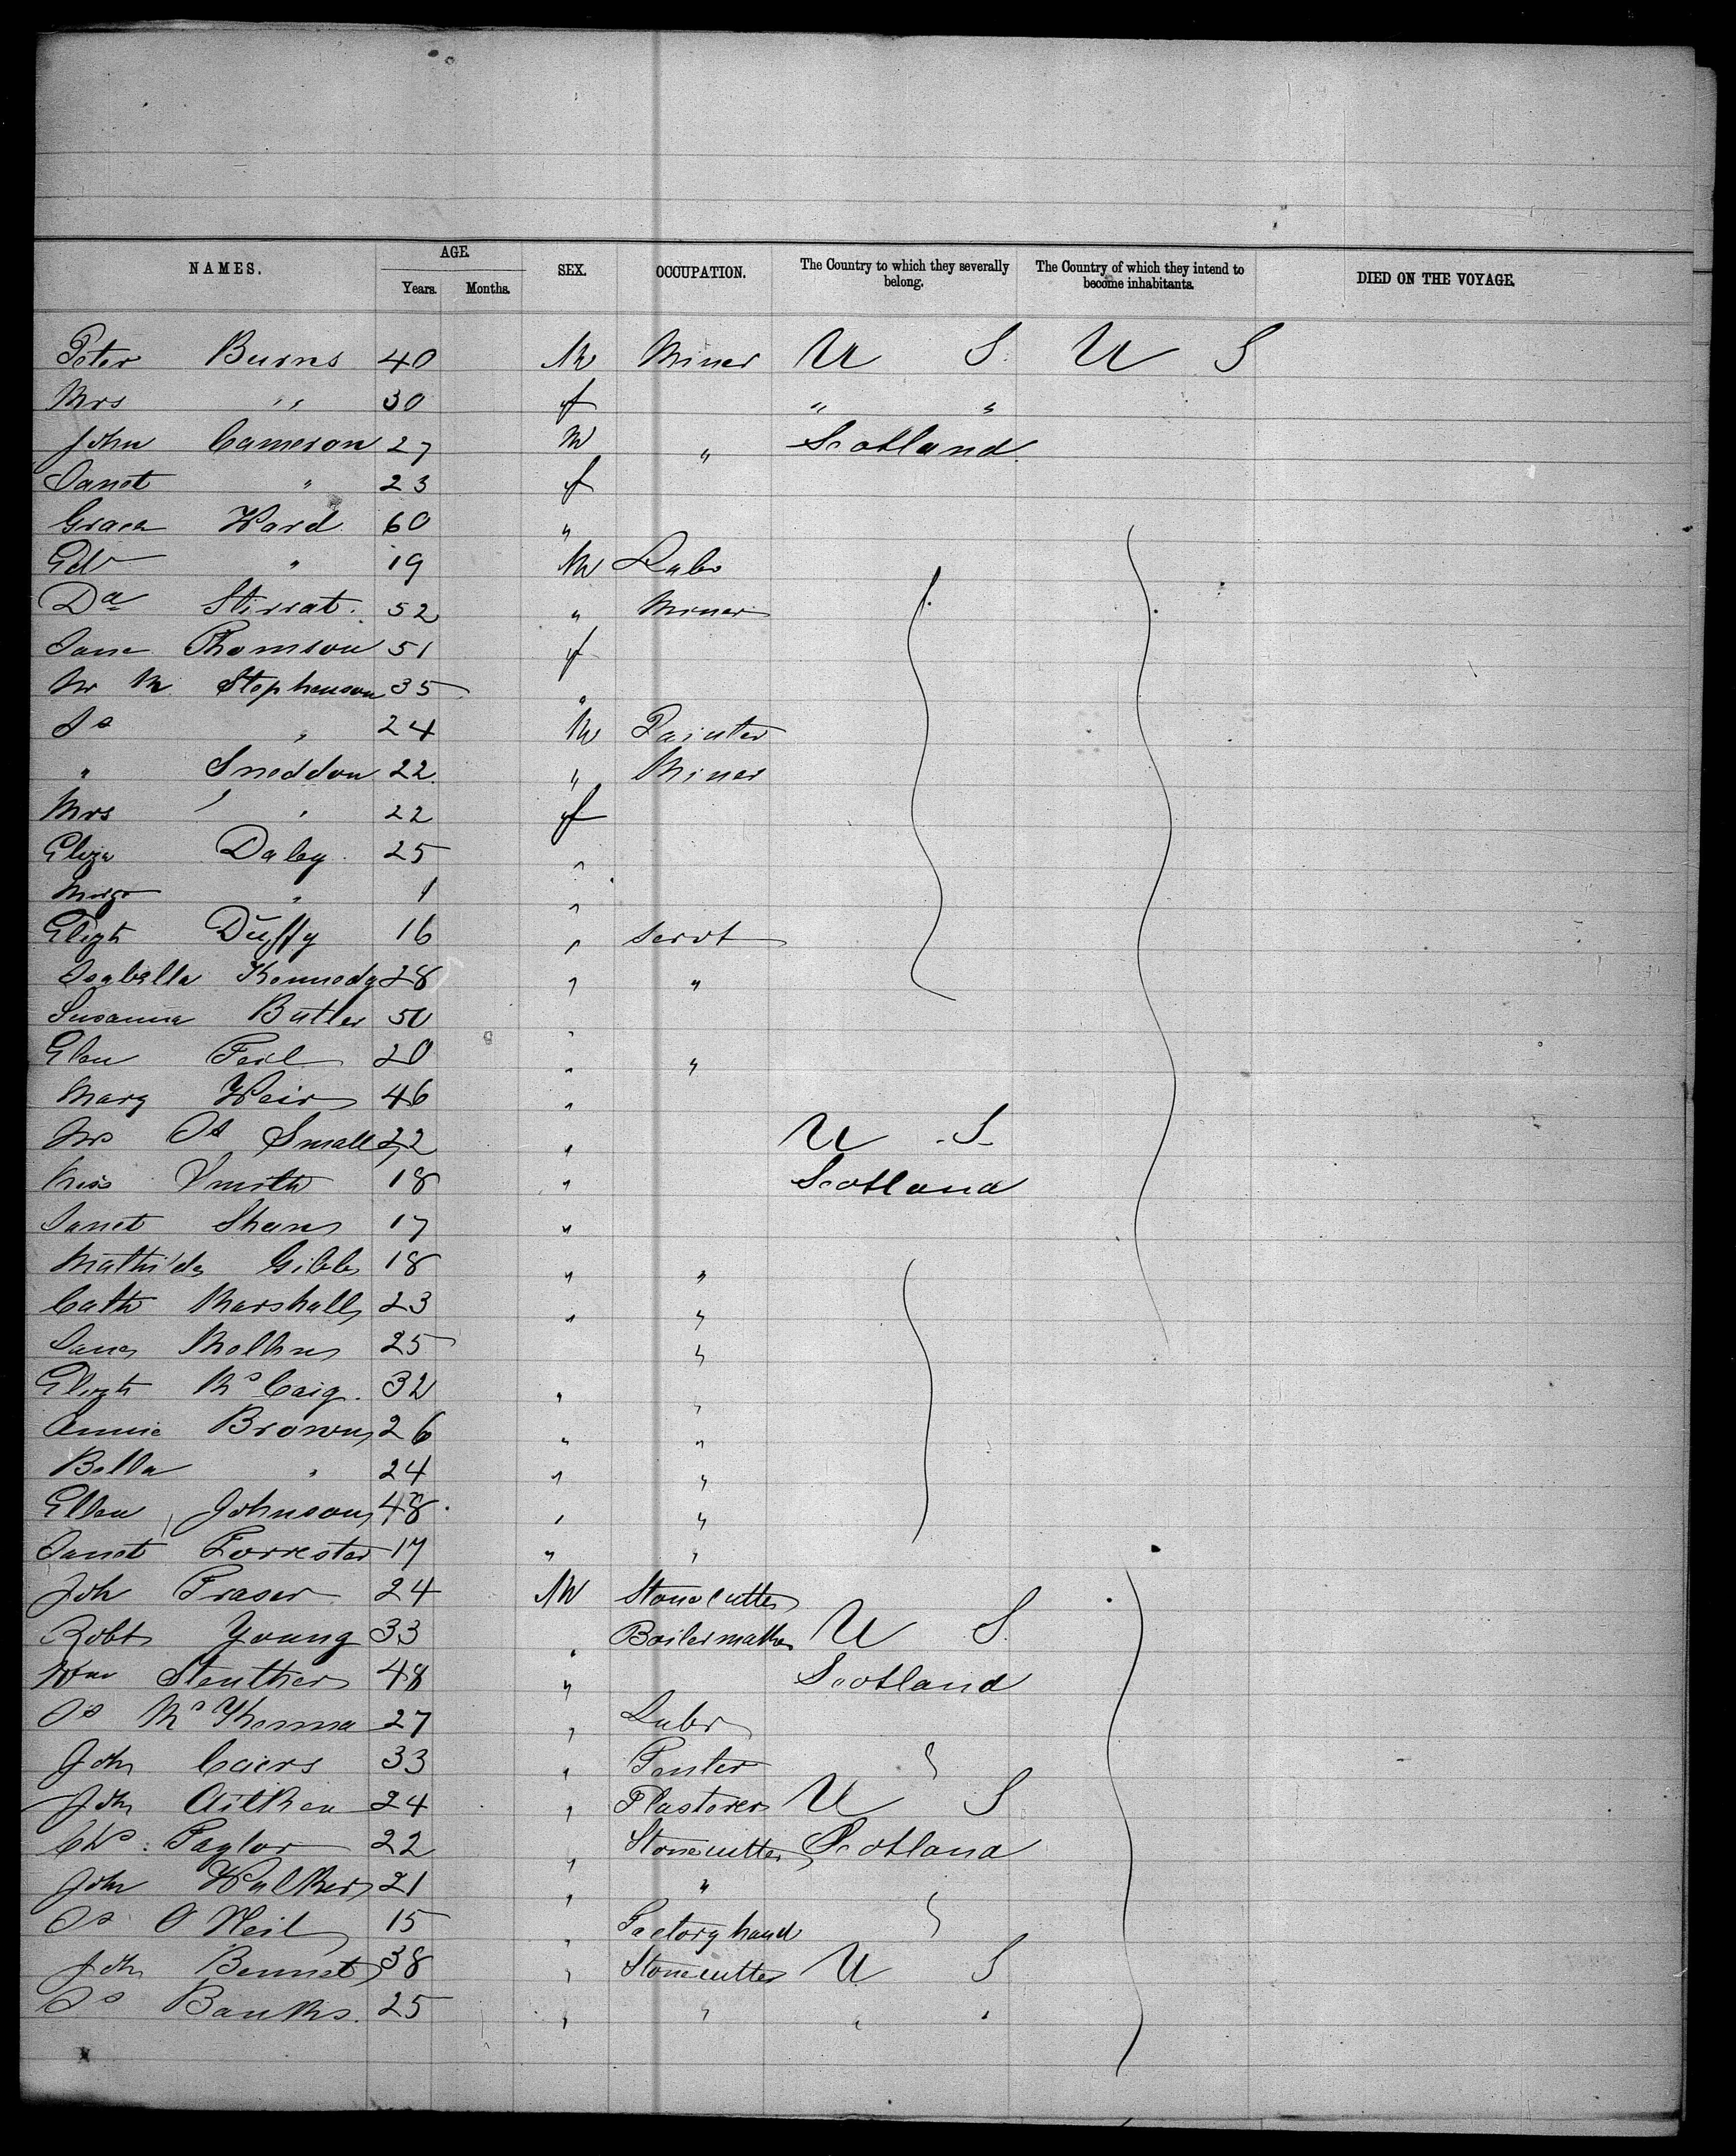 NAMES. AGE. SEX. OCCUPATION. The Country to which they severally belong. The Country of which they intend to become inhabitants. DIED ON THE VOYAGE.
Years. Months.
Peter Burns 40 M Miner U S. U S
Mrs " 30 f " "
John Cameron 27 M " Scotland
Janet " 23 f
Grace Ward 60 "
Edw " 19 M Labr
Da Stirrat 52 " Miner
Jane Thomson 51 f
M Stephenson 35 "
Js " 24 M Painter
" Sneddon 22 " Miner
Mrs " 22 f
Eliza Daley 25 "
Margt " 1 "
Elizth Duffy 16 " Servt
Isabella Kennedy 28 " "
Susanna Butler 50 "
Elen 20 " "
Mary Weir 46 "
Mrs Js Small 22 " U S
Miss Smith 18 " Scotland
Janet 17 "
Mathilda Gibb 18 " "
Cath Marshall 23 " "
25 "
Elizth McCaig 32 " "
Annie Brown 26 " "
Bella " 24 " "
Ellen Johnson 48 " "
Janet Forrester 17 " "
Joh Fraser 24 M Stonecutter
Robt Young 33 " Boilermaker U S.
Wm 48 " Scotland
Js McKenna 27 " Labr
John 33 "
John Aitken 24 " Plasterer U S
Chs Taylor 22 " Stonecutter Scotland
John Walker 21 " "
Js O Neil 15 " Factory hand
Joh Bennet 38 " Stonecutter U S
Js Banks 25 " " " "